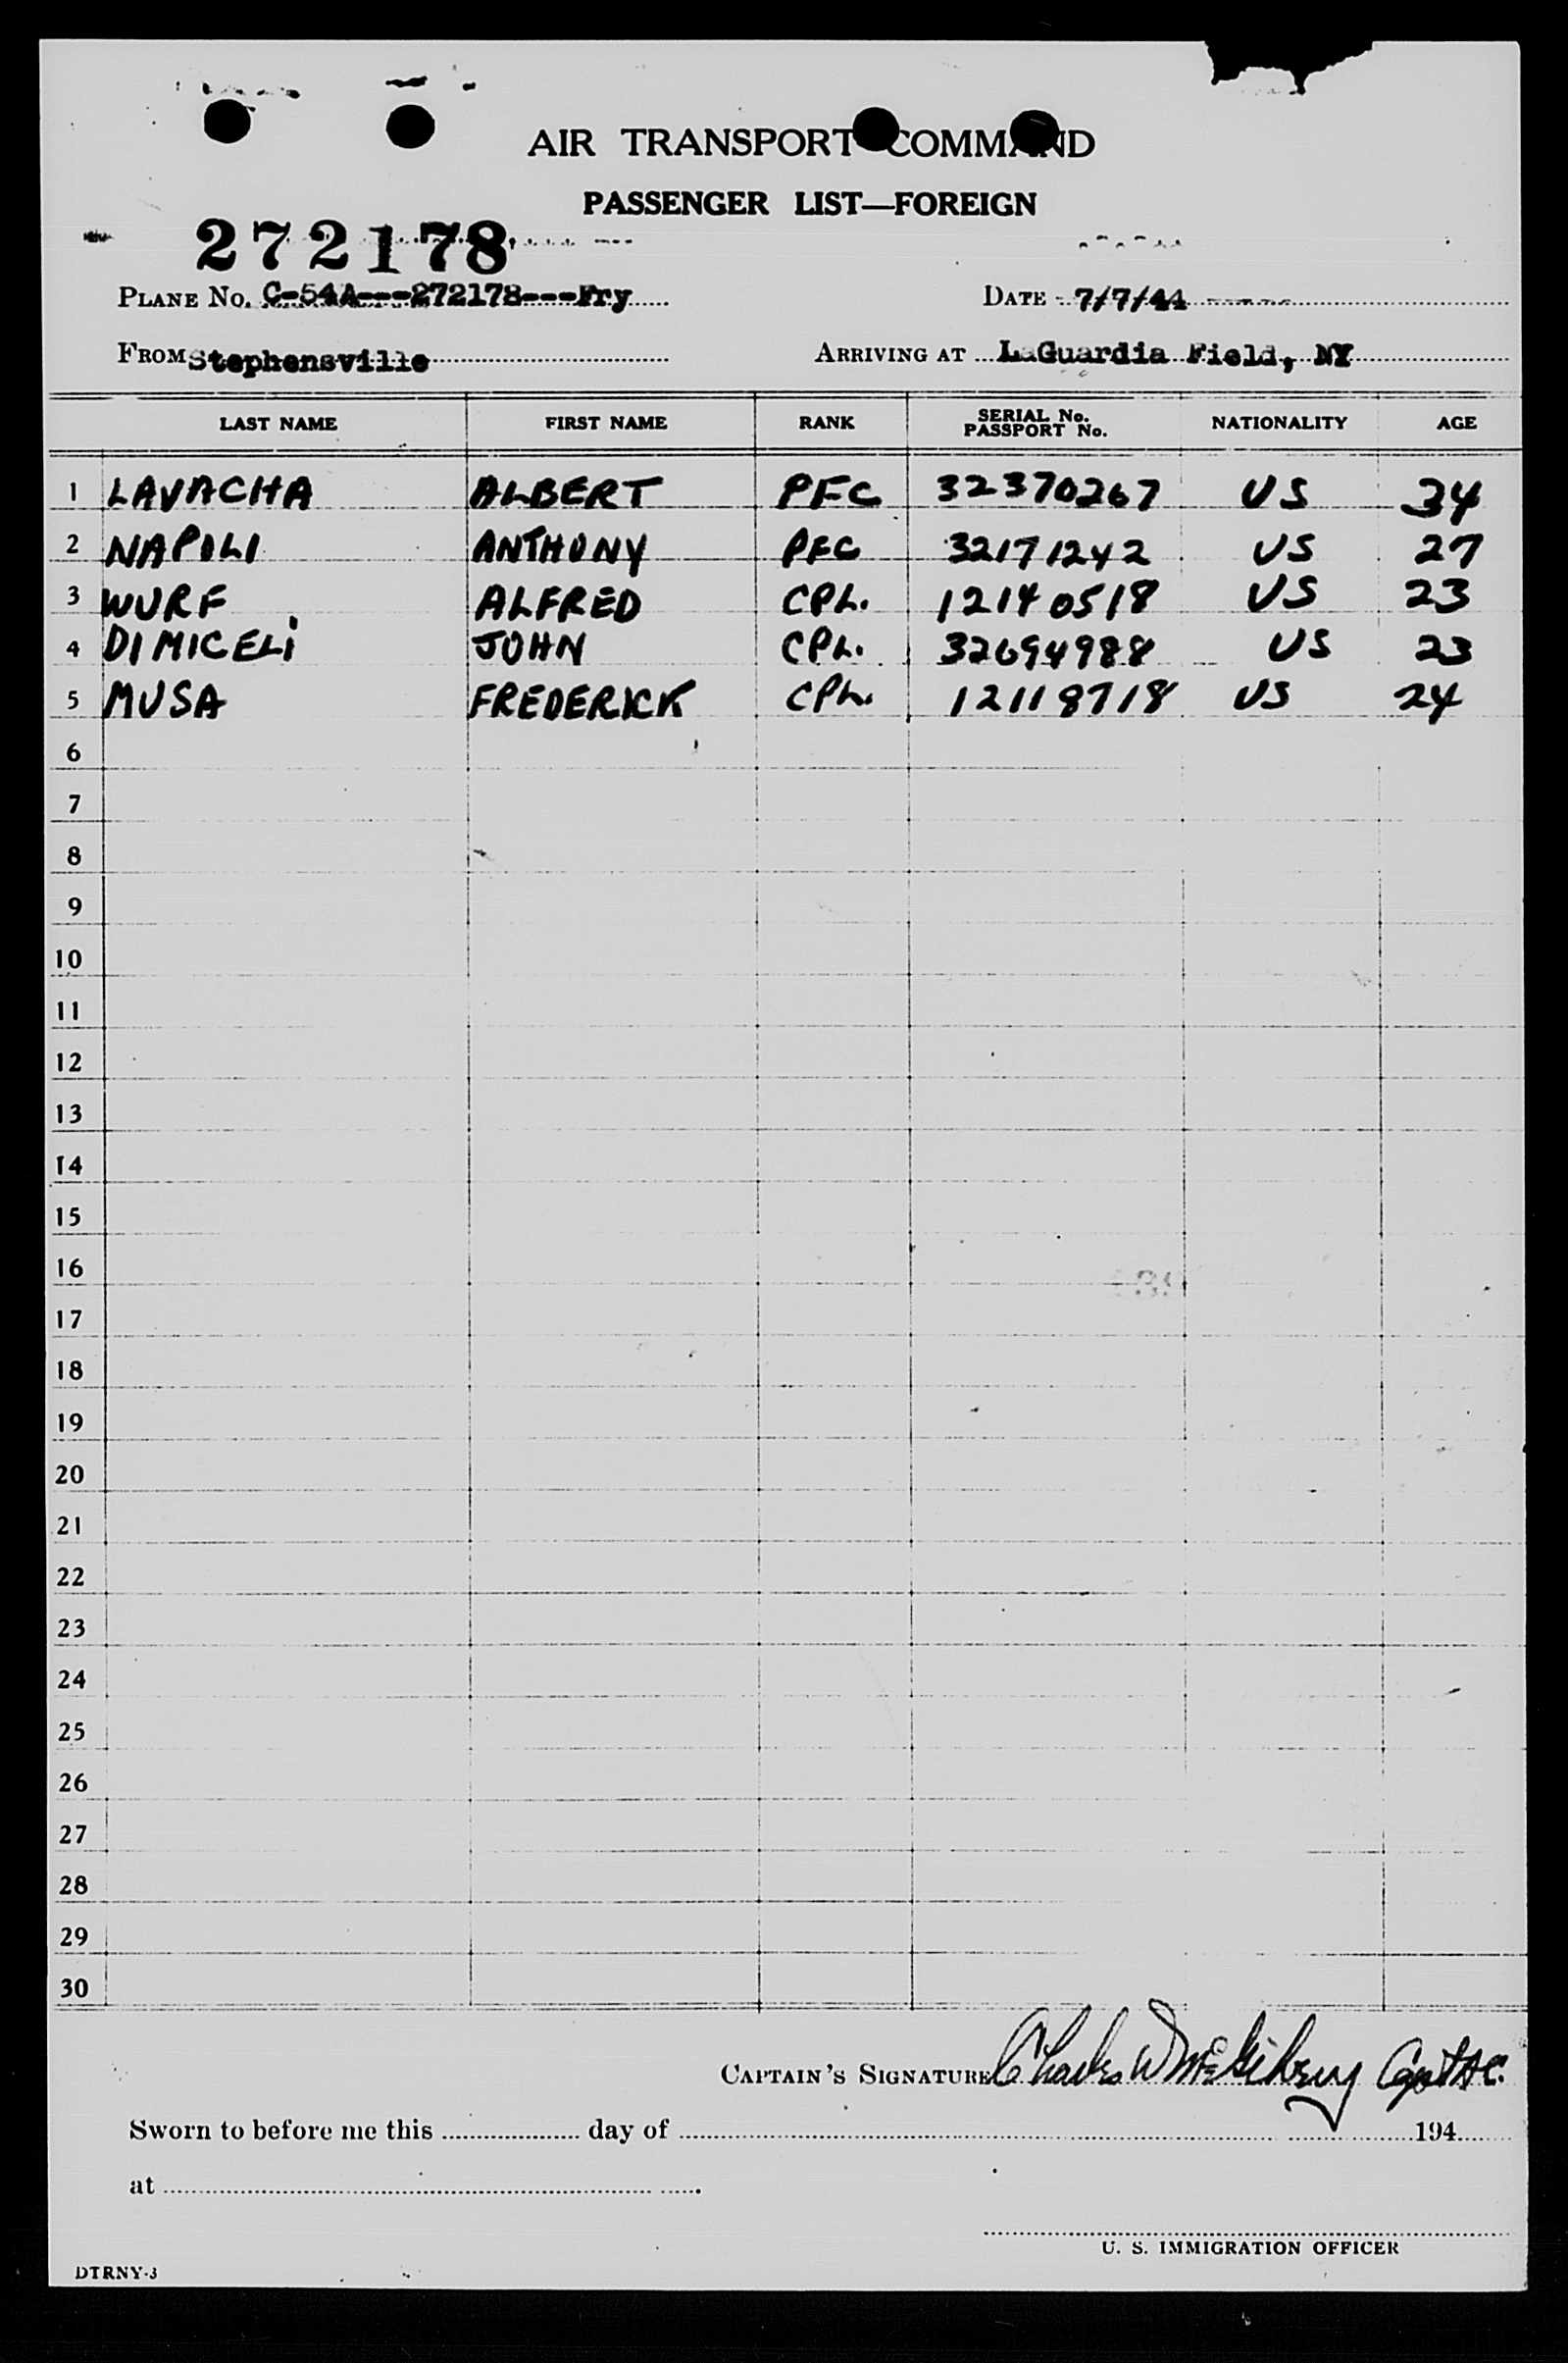 AIR TRANSPORT COMMAND
PASSENGER LIST—FOREIGN
272178
PLANE No. C-54A---272178---Fry DATE 7/7/44
FROM Stephensville ARRIVING AT LaGuardia Field, NY
LAST NAME FIRST NAME RANK SERIAL No. PASSPORT No. NATIONALITY AGE
1 LAVACHA ALBERT PFC 32370267 US 34
2 NAPOLI ANTHONY PFC 32171242 US 27
3 WURF ALFRED CPL. 12140518 US 23
4 DIMICELI JOHN CPL. 32694988 US 23
5 MUSA FREDERICK CPL. 12118718 US 24
6
7
8
9
10
11
12
13
14
15
16
17
18
19
20
21
22
23
24
25
26
27
28
29
30
CAPTAIN'S SIGNATURE Charles W Capt AC.
Sworn to before me this day of 194
at
U. S. IMMIGRATION OFFICER
DTRNY-3